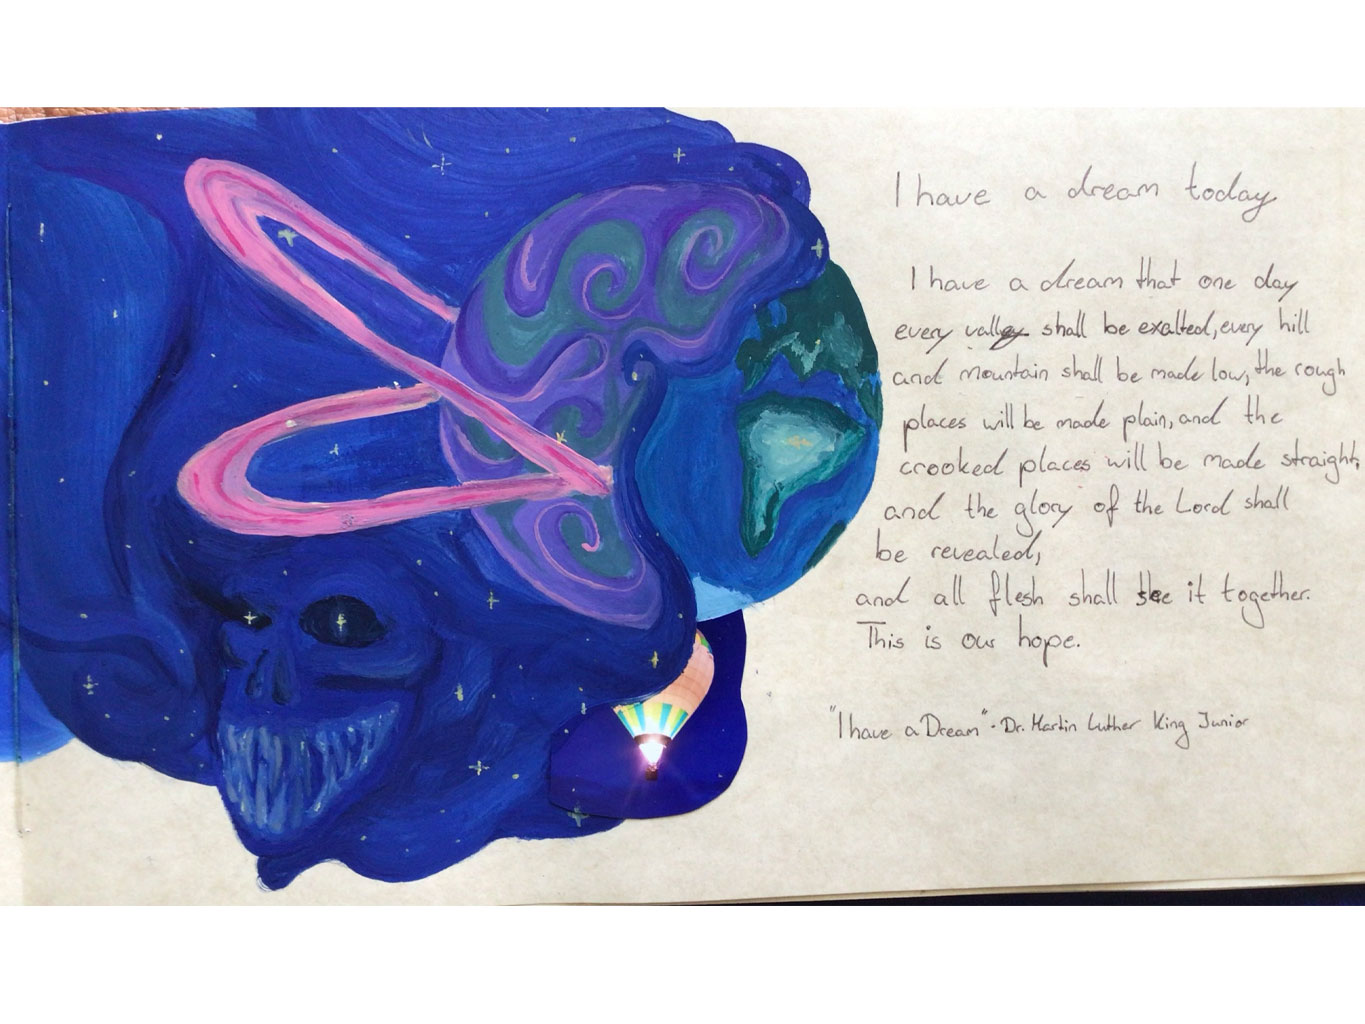 I have a dream today
I have a dream that one day
every valley shall be exalted, every hill
and mountain shall be made low, the rough
places will be made plain, and the
crooked places will be made straight,
and the glory of the Lord shall
be revealed,
and all flesh shall see it together.
This is our hope.
"I have a Dream" - Dr. Martin Luther King Junior